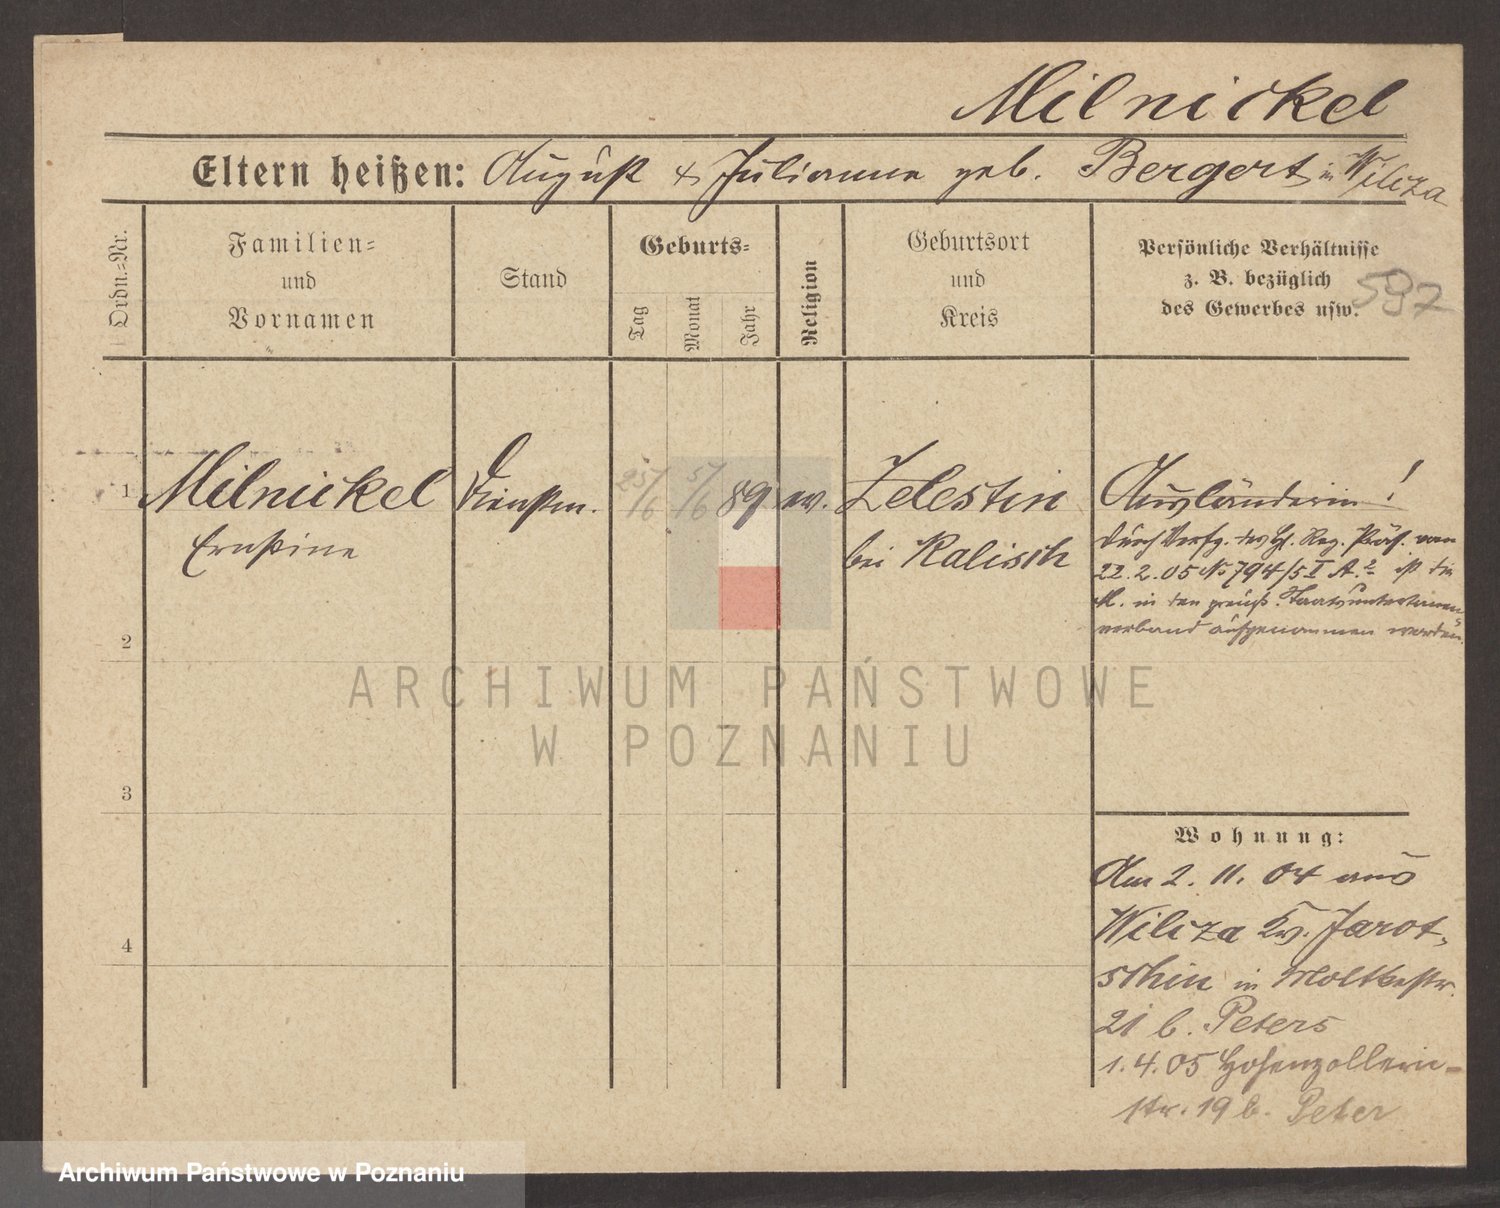 Milnickel
Eltern heißen: August & Julianne geb. Bergert in Wilcza
Ordn.-Nr.
Familien-
und
Vornamen
Stand
Geburts-
Tag
Monat
Jahr
Religion
Geburtsort
und
Kreis
Persönliche Verhältnisse
z. B. bezüglich
des Gewerbes usw.
597
1
Milnickel
Ernstine
Dienstm.
25/6
5/6
89
ev.
Zelestin
bei Kalisch
Ausländerin!
Durch Verfg. des H. Reg. Präs. vom
22. 2. 05 No 794/5 I A. 2 ist die
M. in den preuß. Staatsuntertanen
verband aufgenommen worden.
2
ARCHIWUM PAŃSTWOWE
W POZNANIU
3
Wohnung:
Am 2. 11. 04 aus
Wilcza Kr. Jarot-
schin in Moltkestr.
21 b. Peters
1. 4. 05 Hohenzollern-
str. 19 b. Peter
4
Archiwum Państwowe w Poznaniu